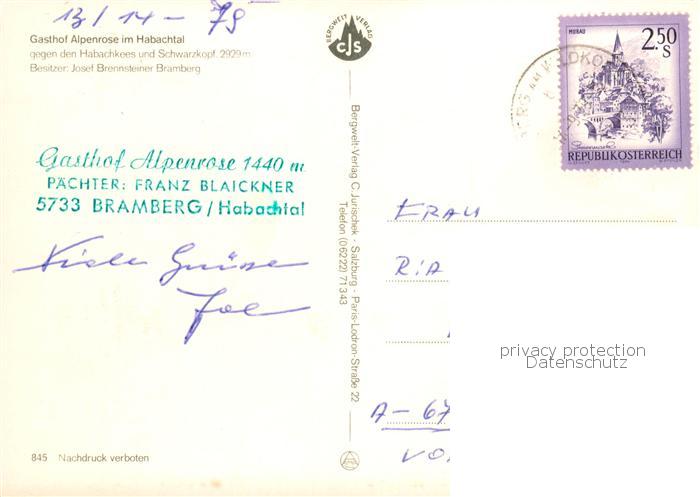 13/14 - 79
Gasthof Alpenrose im Habachtal
gegen den Habachkees und Schwarzkopf. 2929 m
Besitzer: Josef Brennsteiner Bramberg
Gasthof Alpenrose 1440 m
PÄCHTER: FRANZ BLAICKNER
5733 BRAMBERG/Habachtal
Viele Grüsse
845 Nachdruck verboten
BERGWELT VERLAG
CJS
Bergwelt-Verlag C. Jurischek - Salzburg - Paris-Lodron-Straße 22
Telefon (06222) 71343
MURAU
2.50
S
REPUBLIK ÖSTERREICH
FRAU
RIA
privacy protection
Datenschutz
A-67